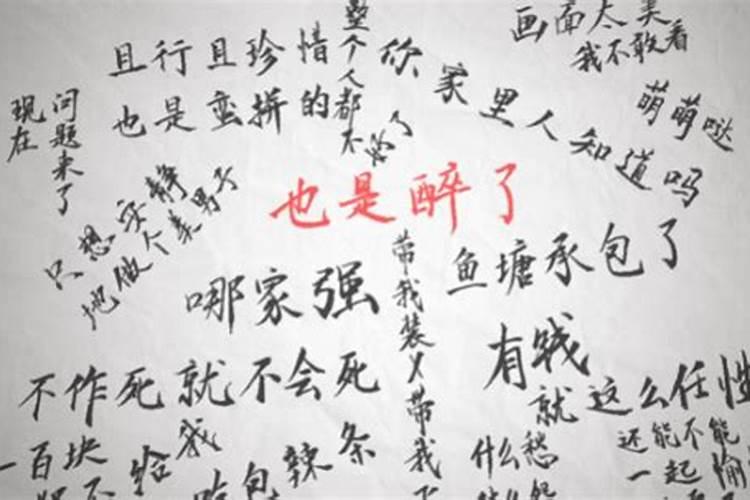 画面太美
我不敢看
且行且珍惜
整个人都不好了
你家里人知道吗
也是蛮拼的
萌萌哒
现在
问题来了
只想安静
地做个美男子
也是醉了
哪家强
带我装X带我
鱼塘承包了
有钱
就这么任性
不作死就不会死
一百块
给我
辣条
什么愁
什么怨
还能不能
一起愉